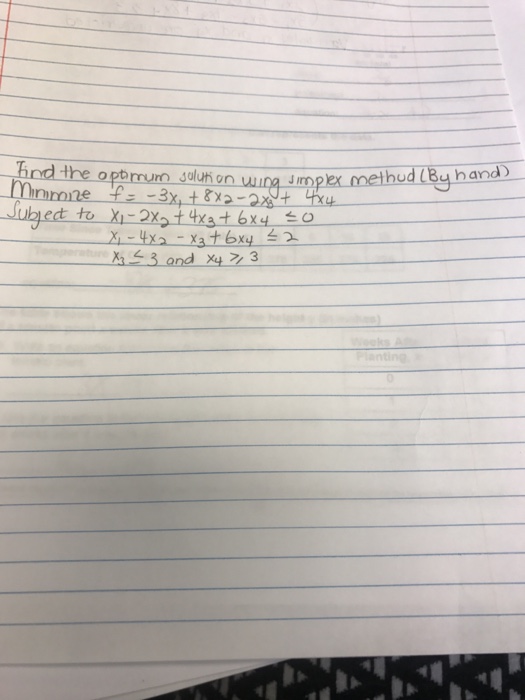 Find the optimum solution using simplex method (By hand)
Minimize f = -3x₁ + 8x₂ - 2x₃ + 4x₄
Subject to x₁ - 2x₂ + 4x₃ + 6x₄ ≤ 0
x₁ - 4x₂ - x₃ + 6x₄ ≤ 2
x₃ ≤ 3 and x₄ ≥ 3
Weeks
Planting
0